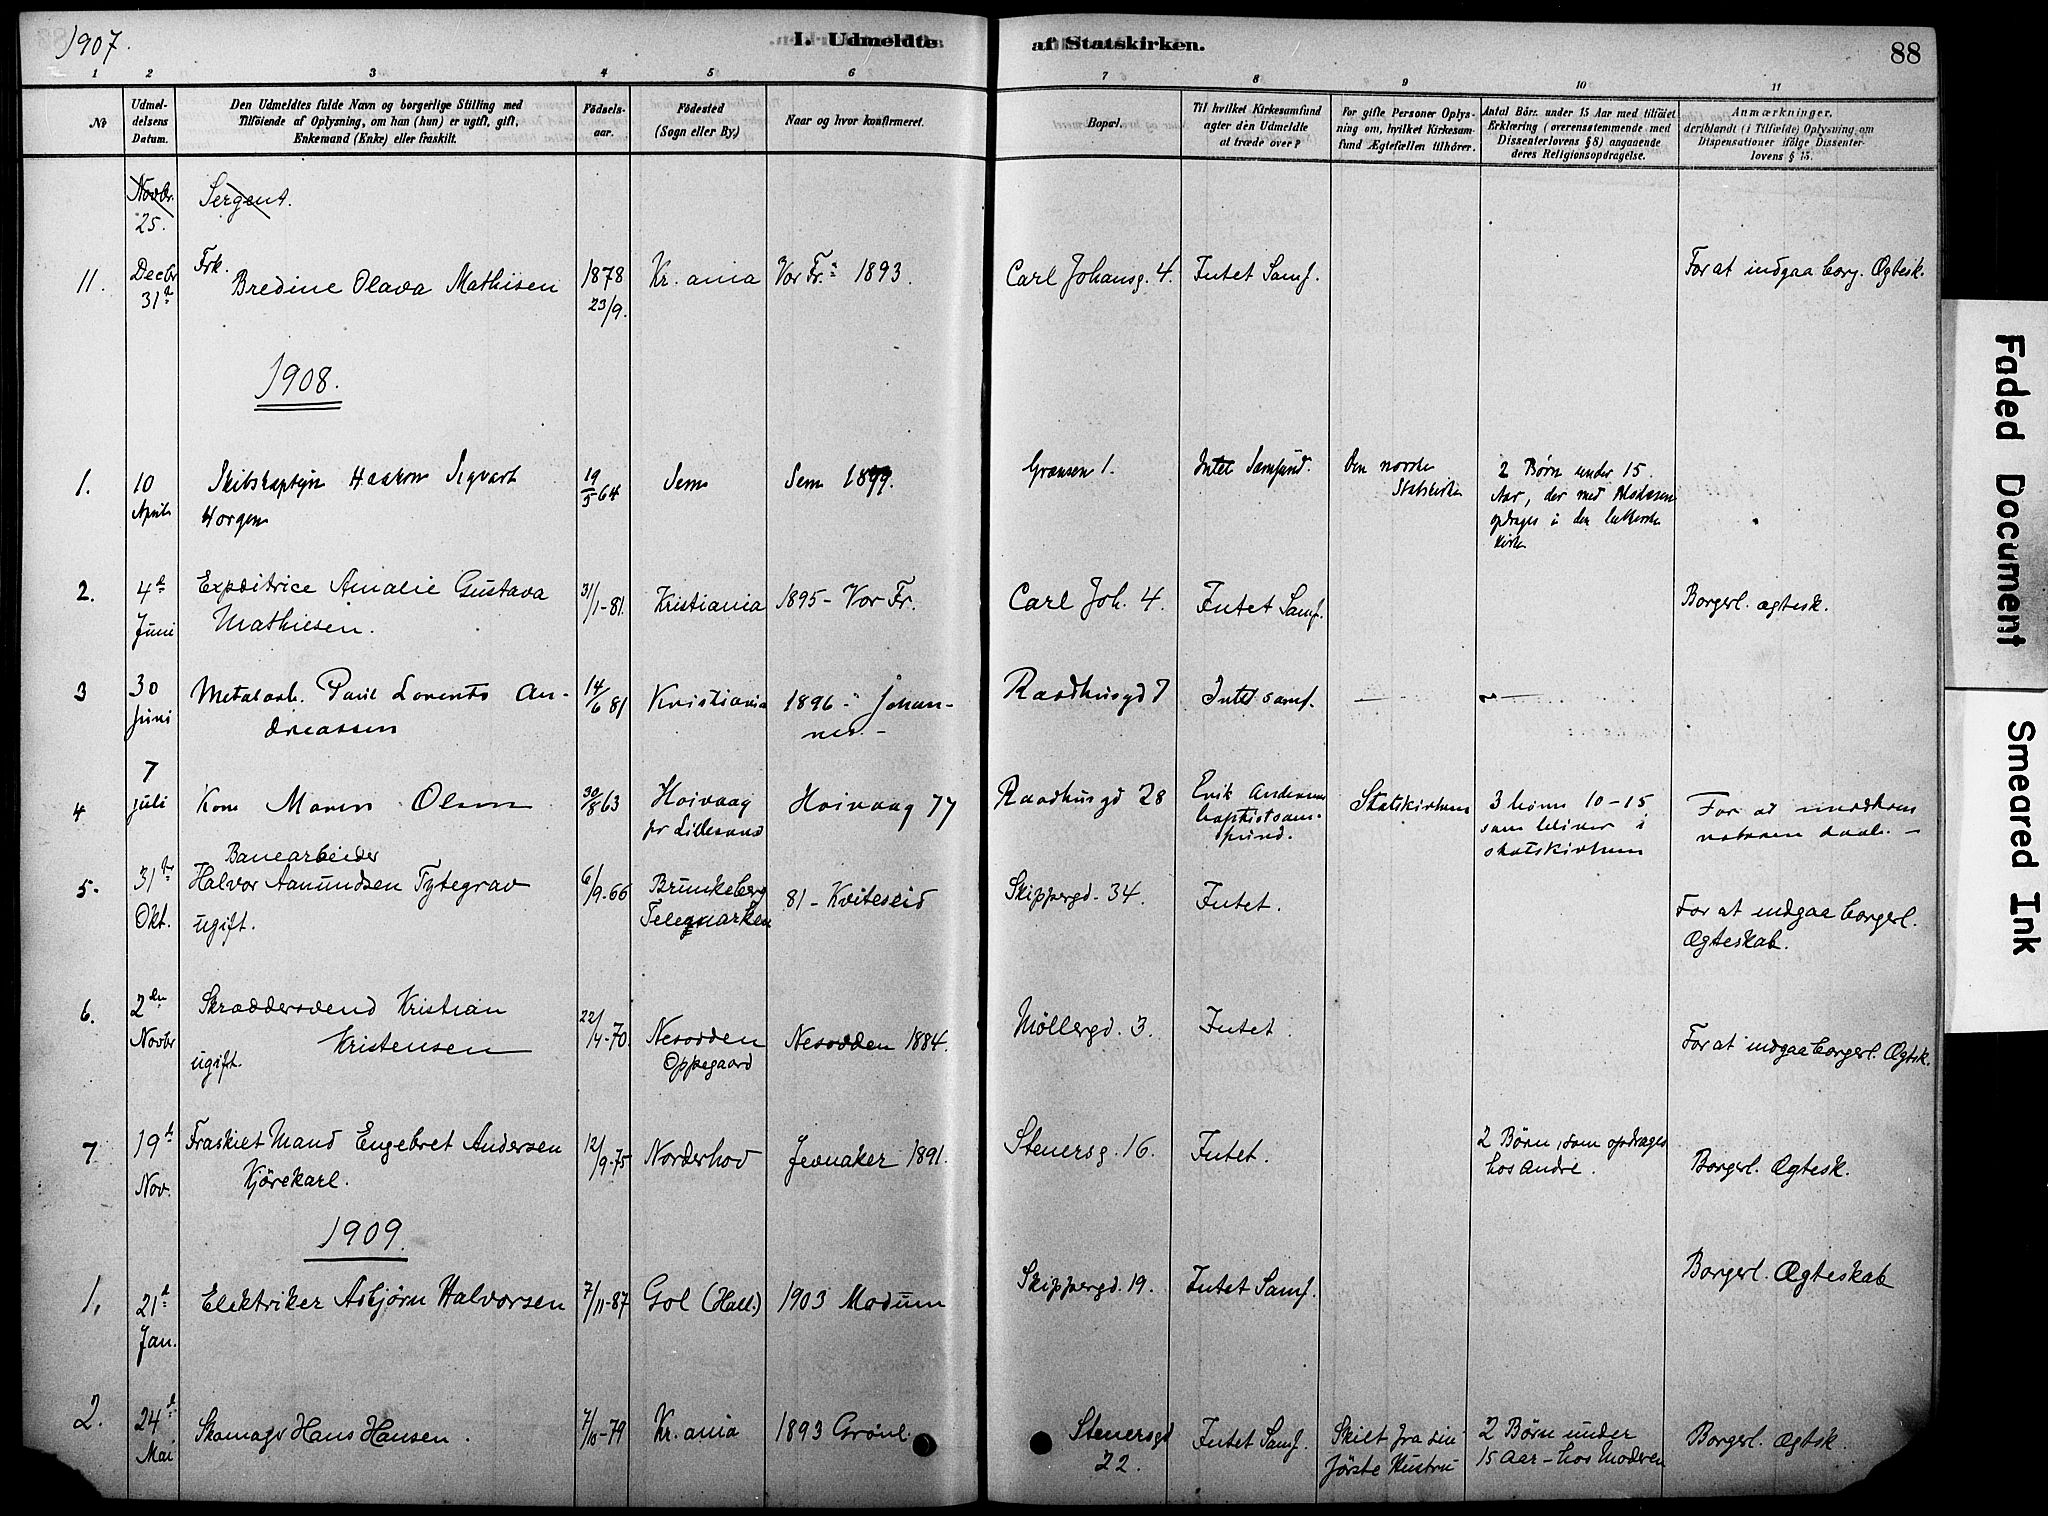 1907.
I. Udmeldte af Statskirken.
88
1 2 3 4 5 6 7 8 9 10 11
No
Udmel-
delsens
Datum.
Den Udmeldtes fulde Navn og borgerlige Stilling med
Tilföiende af Oplysning, om han (hun) er ugift, gift,
Enkemand (Enke) eller fraskilt.
Födsels-
aar.
Födested
(Sogn eller By.)
Naar og hvor konfirmeret.
Bopæl.
Til hvilket Kirkesamfund
agter den Udmeldte
at træde over?
For gifte Personer Oplys-
ning om, hvilket Kirkesam-
fund Ægtefællen tilhörer.
Antal Börn under 15 Aar med tilföiet
Erklæring (overensstemmende med
Dissenterlovens § 8) angaaende
deres Religionsopdragelse.
Anmærkninger,
deriblandt (i Tilfælde) Oplysning om
Dispensationer ifölge Dissenter-
lovens § 15.
Novbr. Sergent.
25.
11. Decbr 31te Frk. Bredine Olava Mathisen 1878 23/9. Kr.ania Vor Fr. 1893. Carl Johansg. 4. Intet Samf. For at indgaa borg. Ægtesk.
1908.
1. 10 April Skibskaptein Haakon Sigvart 19/5 64 Sem Sem 1899. Grænsen 1. Intet Samfund. Den norske Statskirke 2 Børn under 15
Horgen Aar, der med Moderen
opdrages i den lutherske
Kirke
2. 4de Juni Expeditrice Amalie Gustava 31/1-81. Kristiania 1895 - Vor Fr. Carl Joh. 4. Intet Samf. Borgerl. ægtesk.
Mathiesen.
3 30 Juni Metalarb. Paul Lorents An- 14/6 81 Kristiania 1896 - Johan- Raadhusgd 7 Intet samf. — —
dreassen nes. -
4 7 juli Kone Maren Olsen 30/8 63 Hoivaag Hoivaag 77 Raadhusgd 28 Erik Andersens Statskirken 3 børn 10-15 For at modtage
pr Lillesand baptistsam- som bliver i
fund. statskirken
5. 31te Okt. Banearbeider
Halvor Aamundsen Tytegrav 6/9-66 Brunkeberg 81 - Kviteseid Skippergd. 34. Intet. For at indgaa borgerl.
ugift. Telemarken Ægteskab.
6. 2den Novbr Skræddersvend Kristian 22/4-70. Nesodden Nesodden 1884. Møllergd. 3. Intet For at indgaa borgerl. Ægtsk.
ugift. Kristensen Oppegaard
7 19de Nov. Fraskilt Mand Engebret Andersen 12/9-75 Norderhov Jevnaker 1891. Stenersg. 16. Intet. 2 Børn, som opdrages Borgerl. Ægtesk.
Kjörekarl. hos Andre.
1909.
1. 21de Jan. Elektriker Asbjørn Halvorsen 7/11-87 Gol (Hall.) 1903 Modum Skippergd. 19. Intet Samf. Borgerl. Ægteskab
2. 24de Mai Skomager Hans Hansen. 7/10-79 Kr.ania 1893 Grønl. Stenersgd Intet Samf. Skilt fra sin 2 Børn under Borgerl. Ægtsk.
22. første Hustru 15 Aar - hos Moderen
Faded Document
Smeared Ink